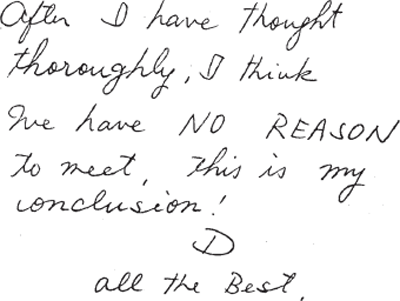 After I have thought
thoroughly, I think
We have NO REASON
to meet, this is my
conclusion!
D
all the Best.